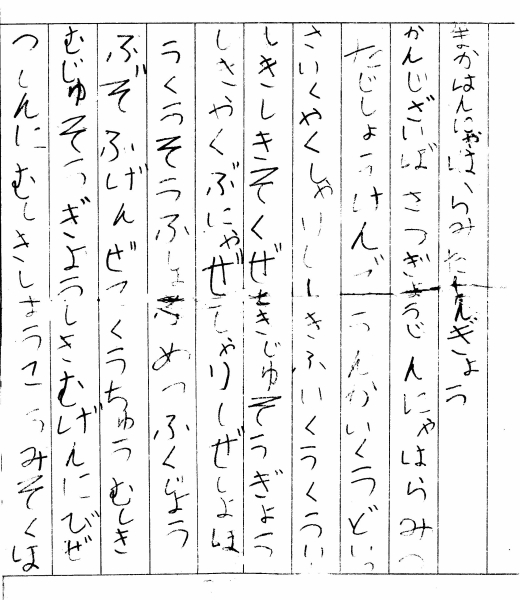 まかはんにゃはらみたしんぎょう
かんじざいぼさつぎょうじんにゃはらみつ
たじしょうけんごうんかいくうどいっ
さいくやくしゃりしーきふいくうくうい
しきしきそくぜきじゅそうぎょう
しきやくぶにゃぜしゃりしぜしょほ
うくうそうふしょうめつふくじょう
ぶぞふげんぜっくうちゅうむしき
むじゅそうぎょうしきむげんにびぜ
つしんにむしきしょうこうみそくほ